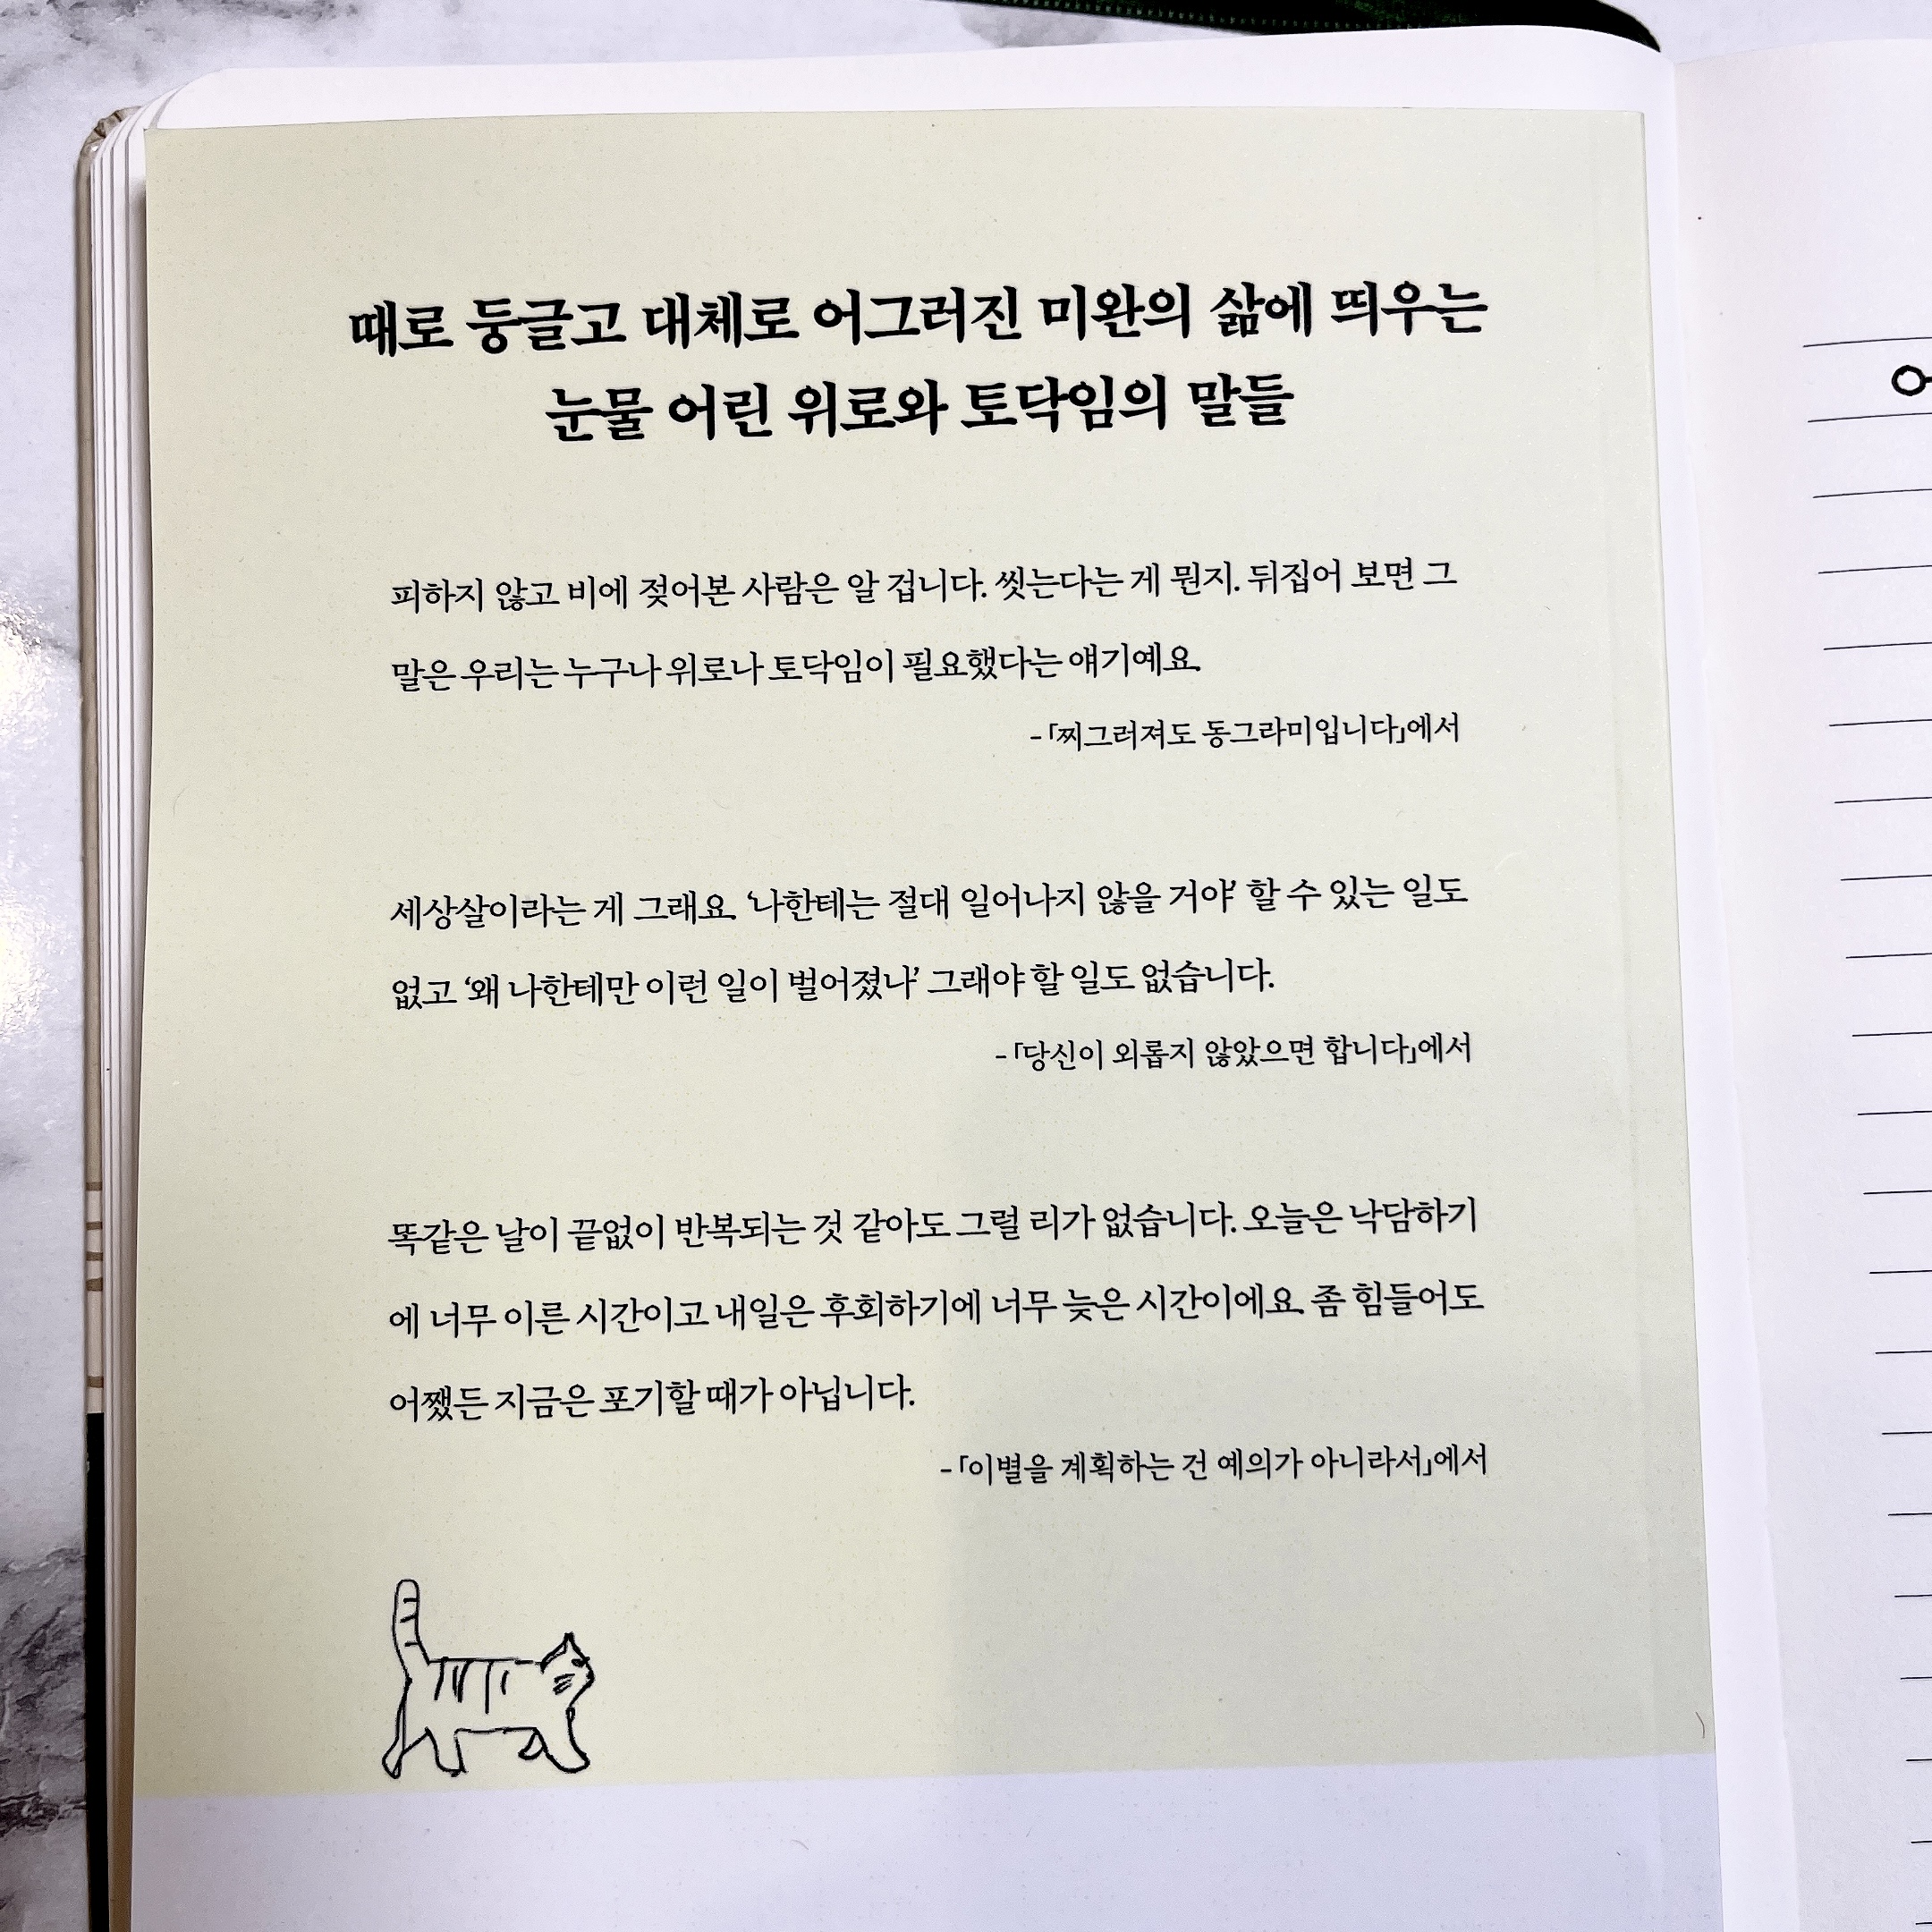 때로 둥글고 대체로 어그러진 미완의 삶에 띄우는
눈물 어린 위로와 토닥임의 말들
피하지 않고 비에 젖어본 사람은 알 겁니다. 씻는다는 게 뭔지. 뒤집어 보면 그
말은 우리는 누구나 위로나 토닥임이 필요했다는 얘기예요.
-「찌그러져도 동그라미입니다」에서
세상살이라는 게 그래요. ‘나한테는 절대 일어나지 않을 거야’ 할 수 있는 일도
없고 ‘왜 나한테만 이런 일이 벌어졌나’ 그래야 할 일도 없습니다.
-「당신이 외롭지 않았으면 합니다」에서
똑같은 날이 끝없이 반복되는 것 같아도 그럴 리가 없습니다. 오늘은 낙담하기
에 너무 이른 시간이고 내일은 후회하기에 너무 늦은 시간이에요. 좀 힘들어도
어쨌든 지금은 포기할 때가 아닙니다.
-「이별을 계획하는 건 예의가 아니라서」에서